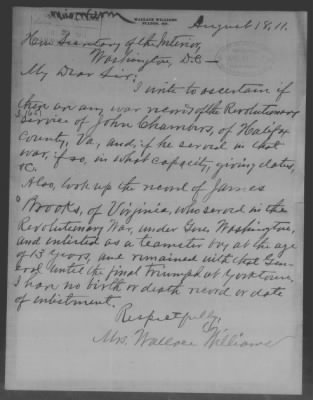 Wallace Williams
August 18, 11.
Hon. Secretary of the Interior,
Washington, D.C. —
My Dear Sir:
I write to ascertain if
there are any war records of the Revolutionary
service of John Chambers, of Halifax
County, Va., and if he served in that
war, if so, in what capacity, giving dates,
&c.
Also, look up the record of James
Brooks, of Virginia, who served in the
Revolutionary War, under Gen. Washington,
and enlisted as a teamster boy at the age
of 13 years, and remained with that Gen-
eral until the final triumph at Yorktown,
I have no birth or death record or date
of enlistment.
Respectfully,
Mrs. Wallace Williams